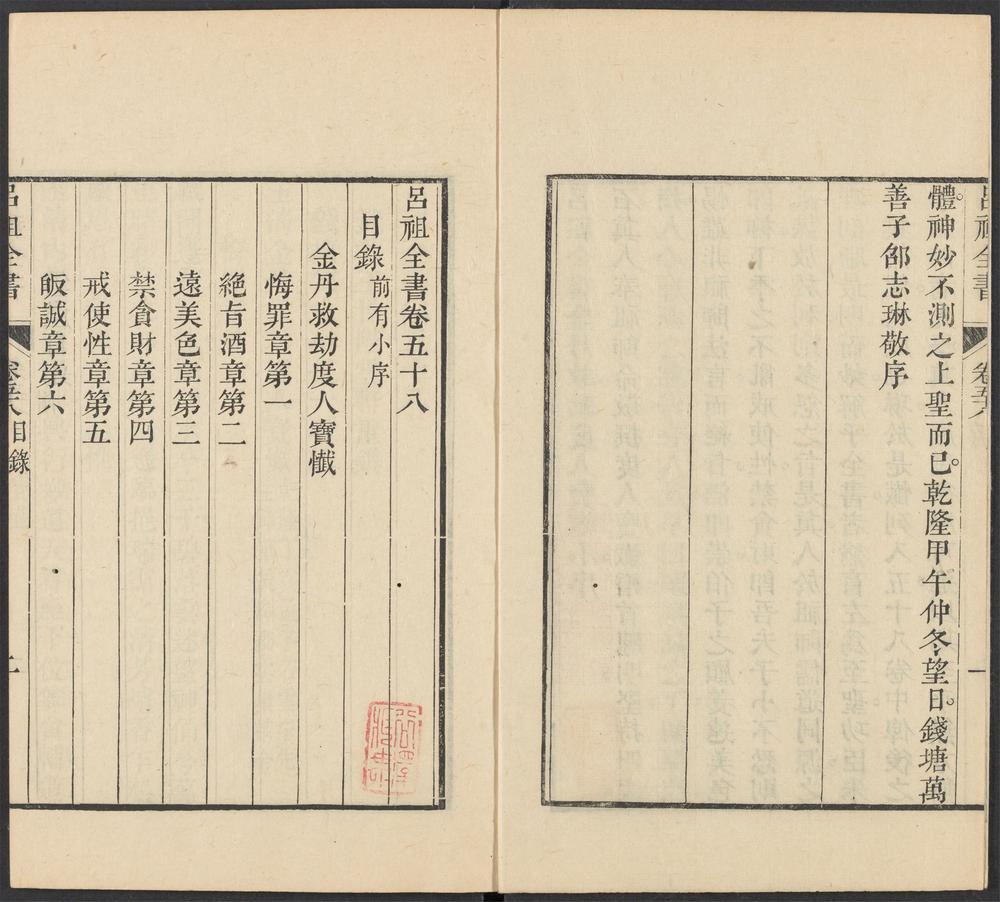 呂祖全書
卷五八
一
體神妙不測之上聖而已。乾隆甲午仲冬望日。錢塘萬
善子邵志琳敬序
呂祖全書卷五十八
目錄 前有小序
金丹救劫度人寶懺
悔罪章第一
絶旨酒章第二
遠美色章第三
禁貪財章第四
戒使性章第五
皈誠章第六
呂祖全書
卷五八目錄